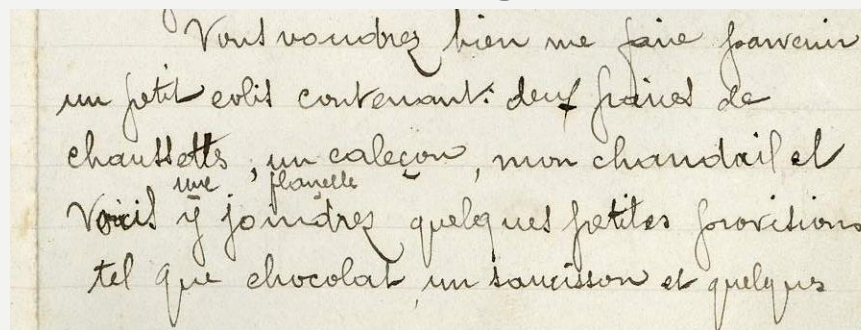 Vous voudrez bien me faire parvenir
un petit colis contenant: deux paires de
chaussettes, un caleçon, mon chandail et
une flanelle
Vous y joindrez quelques petites provisions
tel que chocolat un saucisson et quelques